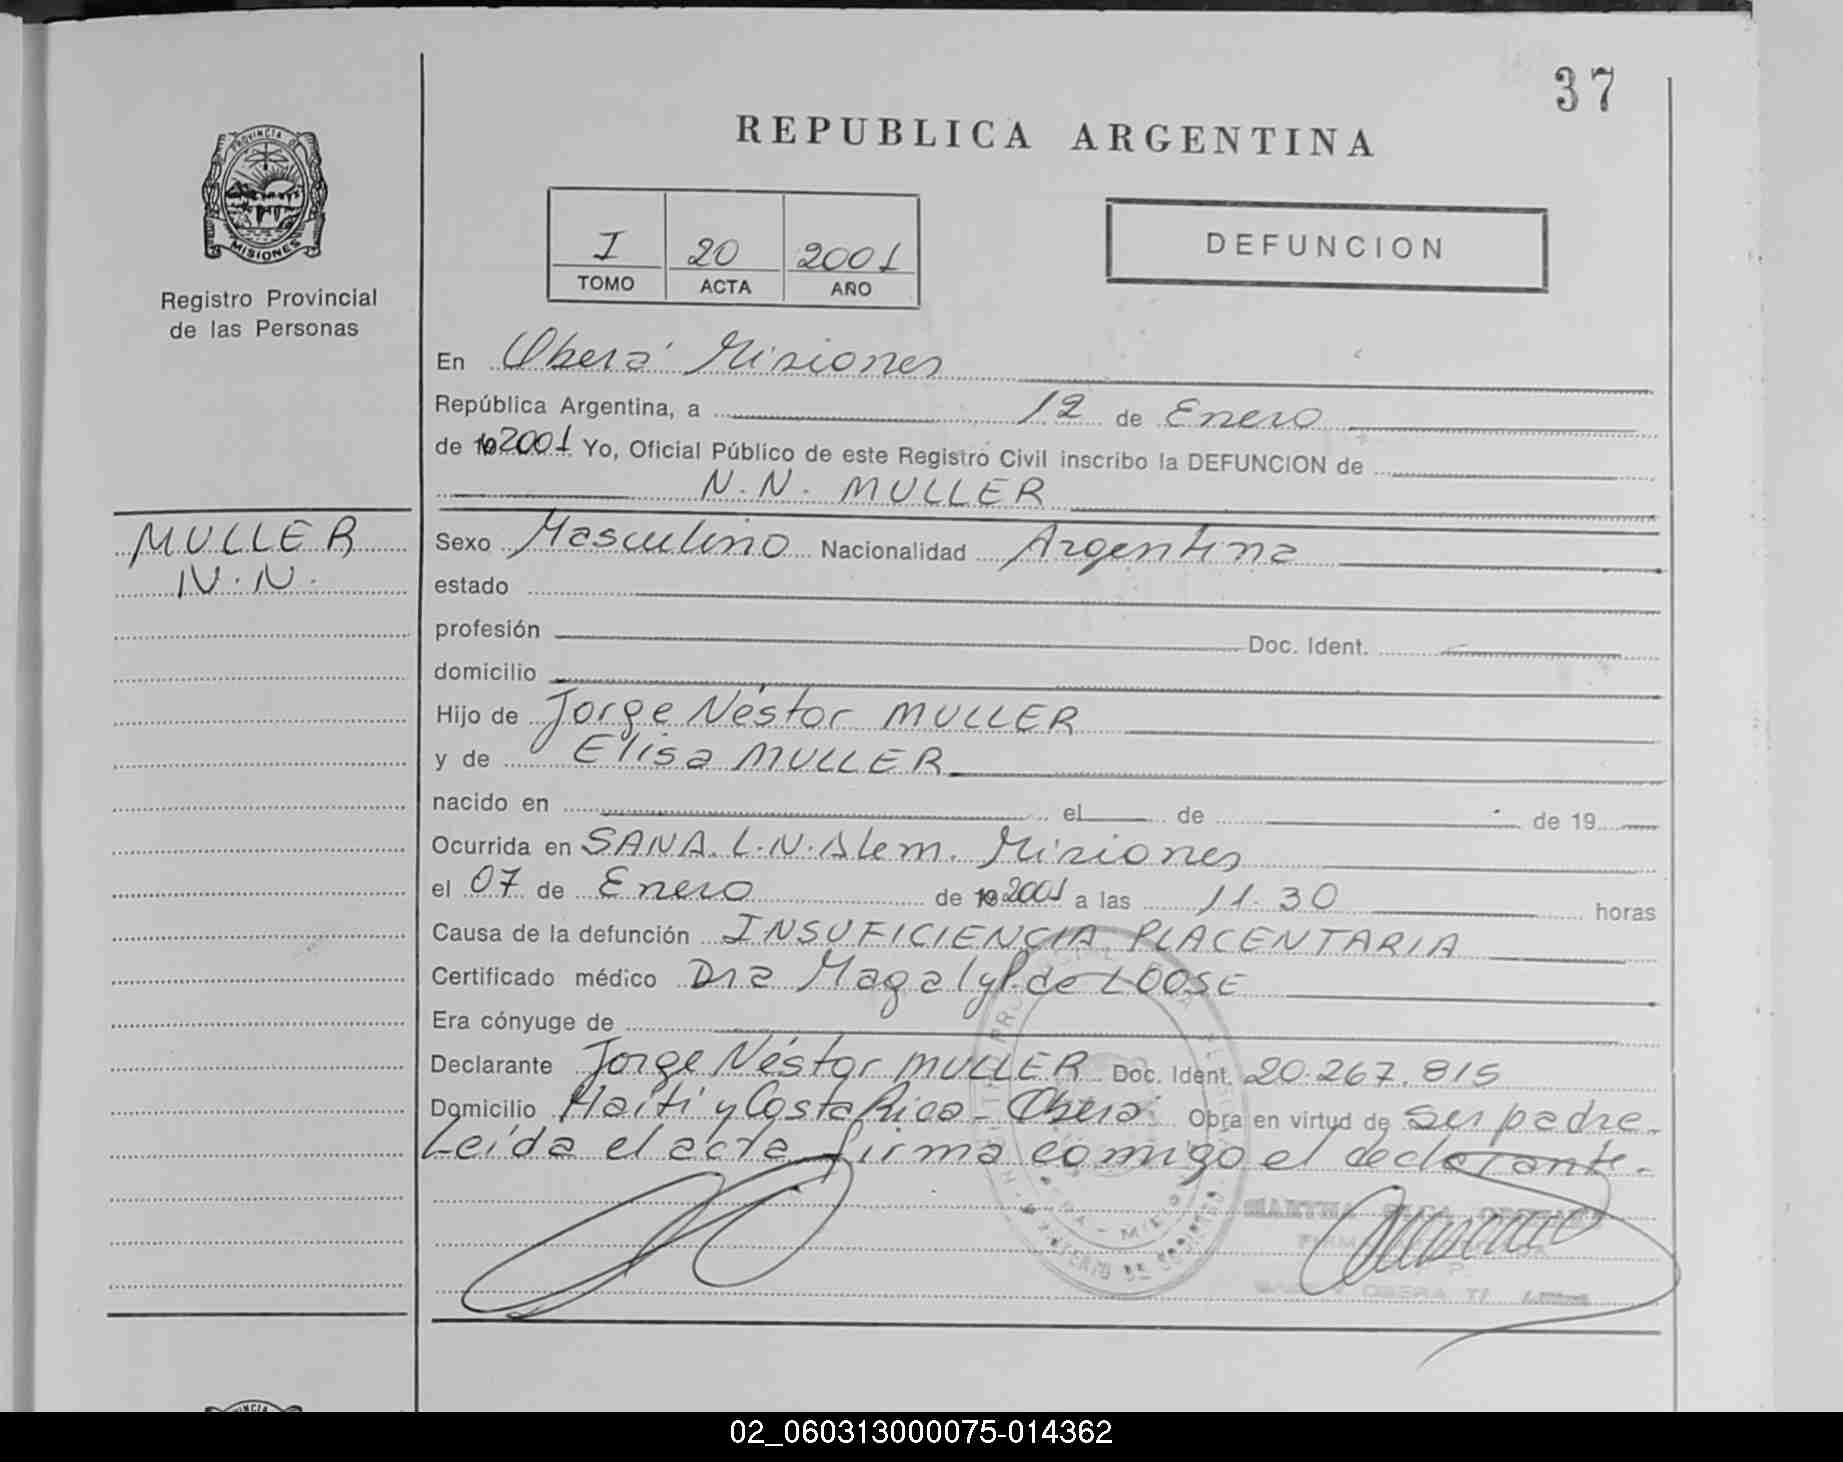 37
REPUBLICA ARGENTINA
PROVINCIA DE
MISIONES
Registro Provincial
de las Personas
I 20 2001
TOMO ACTA AÑO
DEFUNCION
En Oberá Misiones
República Argentina, a 12 de Enero
de 19 2001 Yo, Oficial Público de este Registro Civil inscribo la DEFUNCION de
N.N. MULLER
MULLER
N.N.
Sexo Masculino Nacionalidad Argentina
estado
profesión Doc. Ident.
domicilio
Hijo de Jorge Néstor MULLER
y de Elisa MULLER
nacido en el de de 19
Ocurrida en SANA. L.N. Alem. Misiones
el 07 de Enero de 19 2001 a las 11.30 horas
Causa de la defunción INSUFICIENCIA PLACENTARIA
Certificado médico Dra Magaly P. de LOOSE
Era cónyuge de
Declarante Jorge Néstor MULLER Doc. Ident. 20.267.815
Domicilio Haití y Costa Rica - Oberá Obra en virtud de ser padre.
Leída el acta firma comigo el declarante.
MARTHA
OBERA
02_060313000075-014362